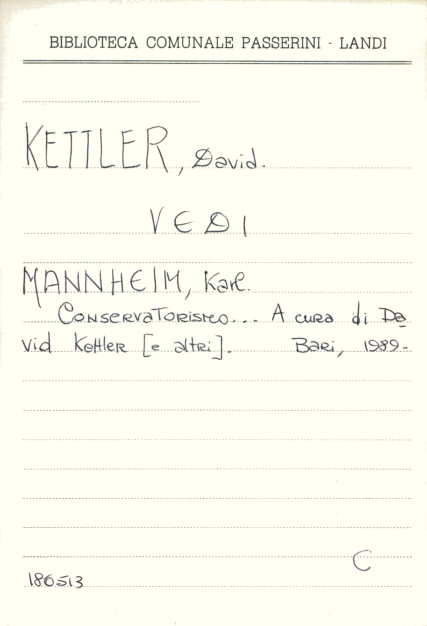 BIBLIOTECA COMUNALE PASSERINI - LANDI
KETTLER, David.
VEDI
MANNHEIM, Karl.
Conservatorismo... A cura di Da
vid Kettler [e altri]. Bari, 1989-
C
186513